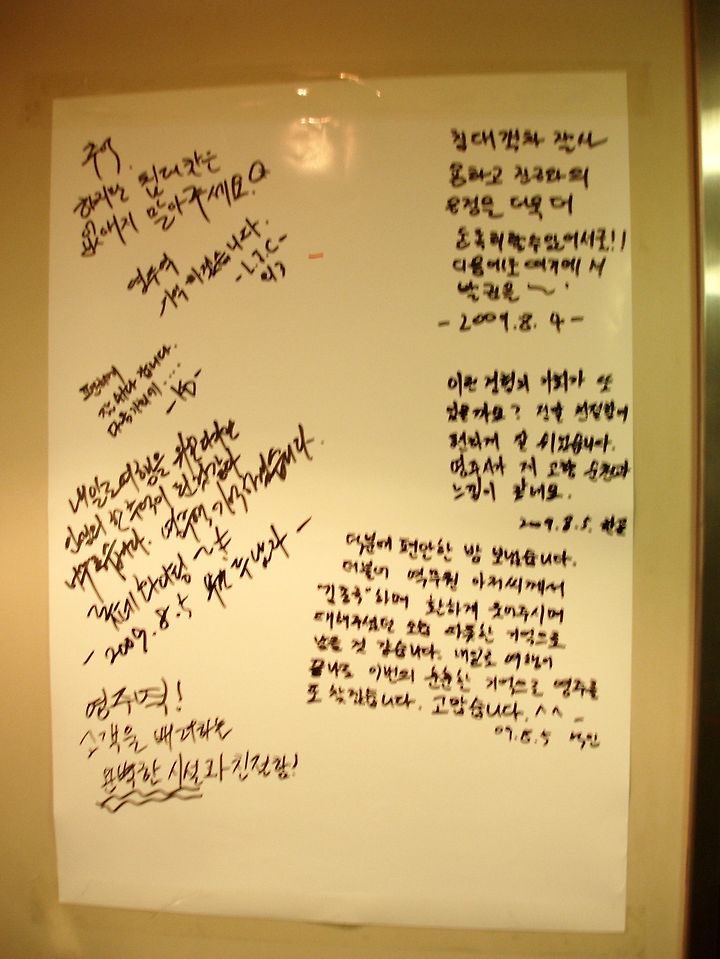 추억.
하지만
없애지 말아주세요.
영주역
기억하겠습니다.
-L.J.C-
편하게
잘 쉬다 갑니다.
다음기회에....
내일로여행을
인생의 한 추억이
영주역, 기억하겠습니다.
- 2009. 8. 5
영주역!
고객을 배려하는
완벽한 시설과 친절함!
침대객차 잘 사
용하고 친구와의
우정을 더욱 더
돈독히 할 수 있어서 굿!!
다음에도 여기에서
발권을 ~
- 2009. 8. 4 -
이런 경험의 기회가 또
있을까요? 정말 친절함에
편하게 잘 쉬었습니다.
영주시가 저 고향 순천과
느낌이 같네요.
2009.8.5.
덕분에 편안한 밤 보냈습니다.
더불어 역무원 아저씨께서
"김종국"하며 환하게 웃어주시며
대해주셨던 모습 따뜻한 기억으로
남을 것 같습니다. 내일로 여행이
끝나도 이번의 훈훈한 기억으로 영주를
또 찾겠습니다. 고맙습니다. ^^
09.8.5